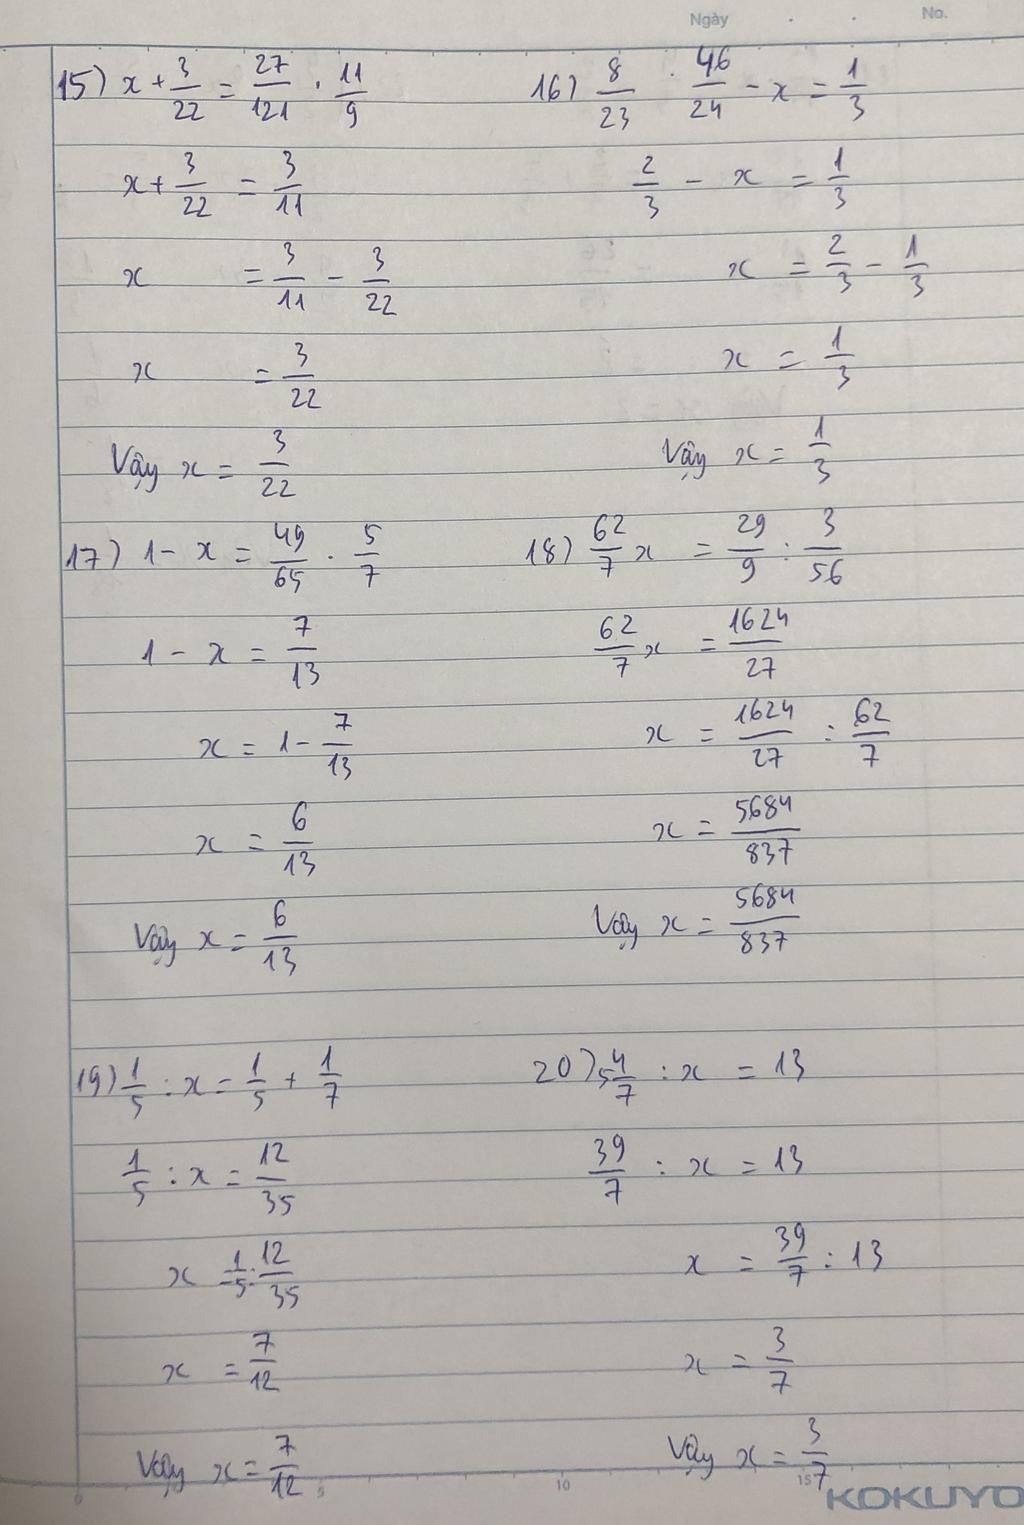 Ngày . . No.
15) x + 3/22 = 27/121 . 11/9
x + 3/22 = 3/11
x = 3/11 - 3/22
x = 3/22
Vậy x = 3/22
16) 8/23 . 46/24 - x = 1/3
2/3 - x = 1/3
x = 2/3 - 1/3
x = 1/3
Vậy x = 1/3
17) 1 - x = 49/65 . 5/7
1 - x = 7/13
x = 1 - 7/13
x = 6/13
Vậy x = 6/13
18) 62/7 x = 29/9 : 3/56
62/7 x = 1624/27
x = 1624/27 : 62/7
x = 5684/837
Vậy x = 5684/837
19) 1/5 : x = 1/5 + 1/7
1/5 : x = 12/35
x = 1/5 : 12/35
x = 7/12
Vậy x = 7/12
20) 5 4/7 : x = 13
39/7 : x = 13
x = 39/7 : 13
x = 3/7
Vậy x = 3/7
0 5 10 15
KOKUYO